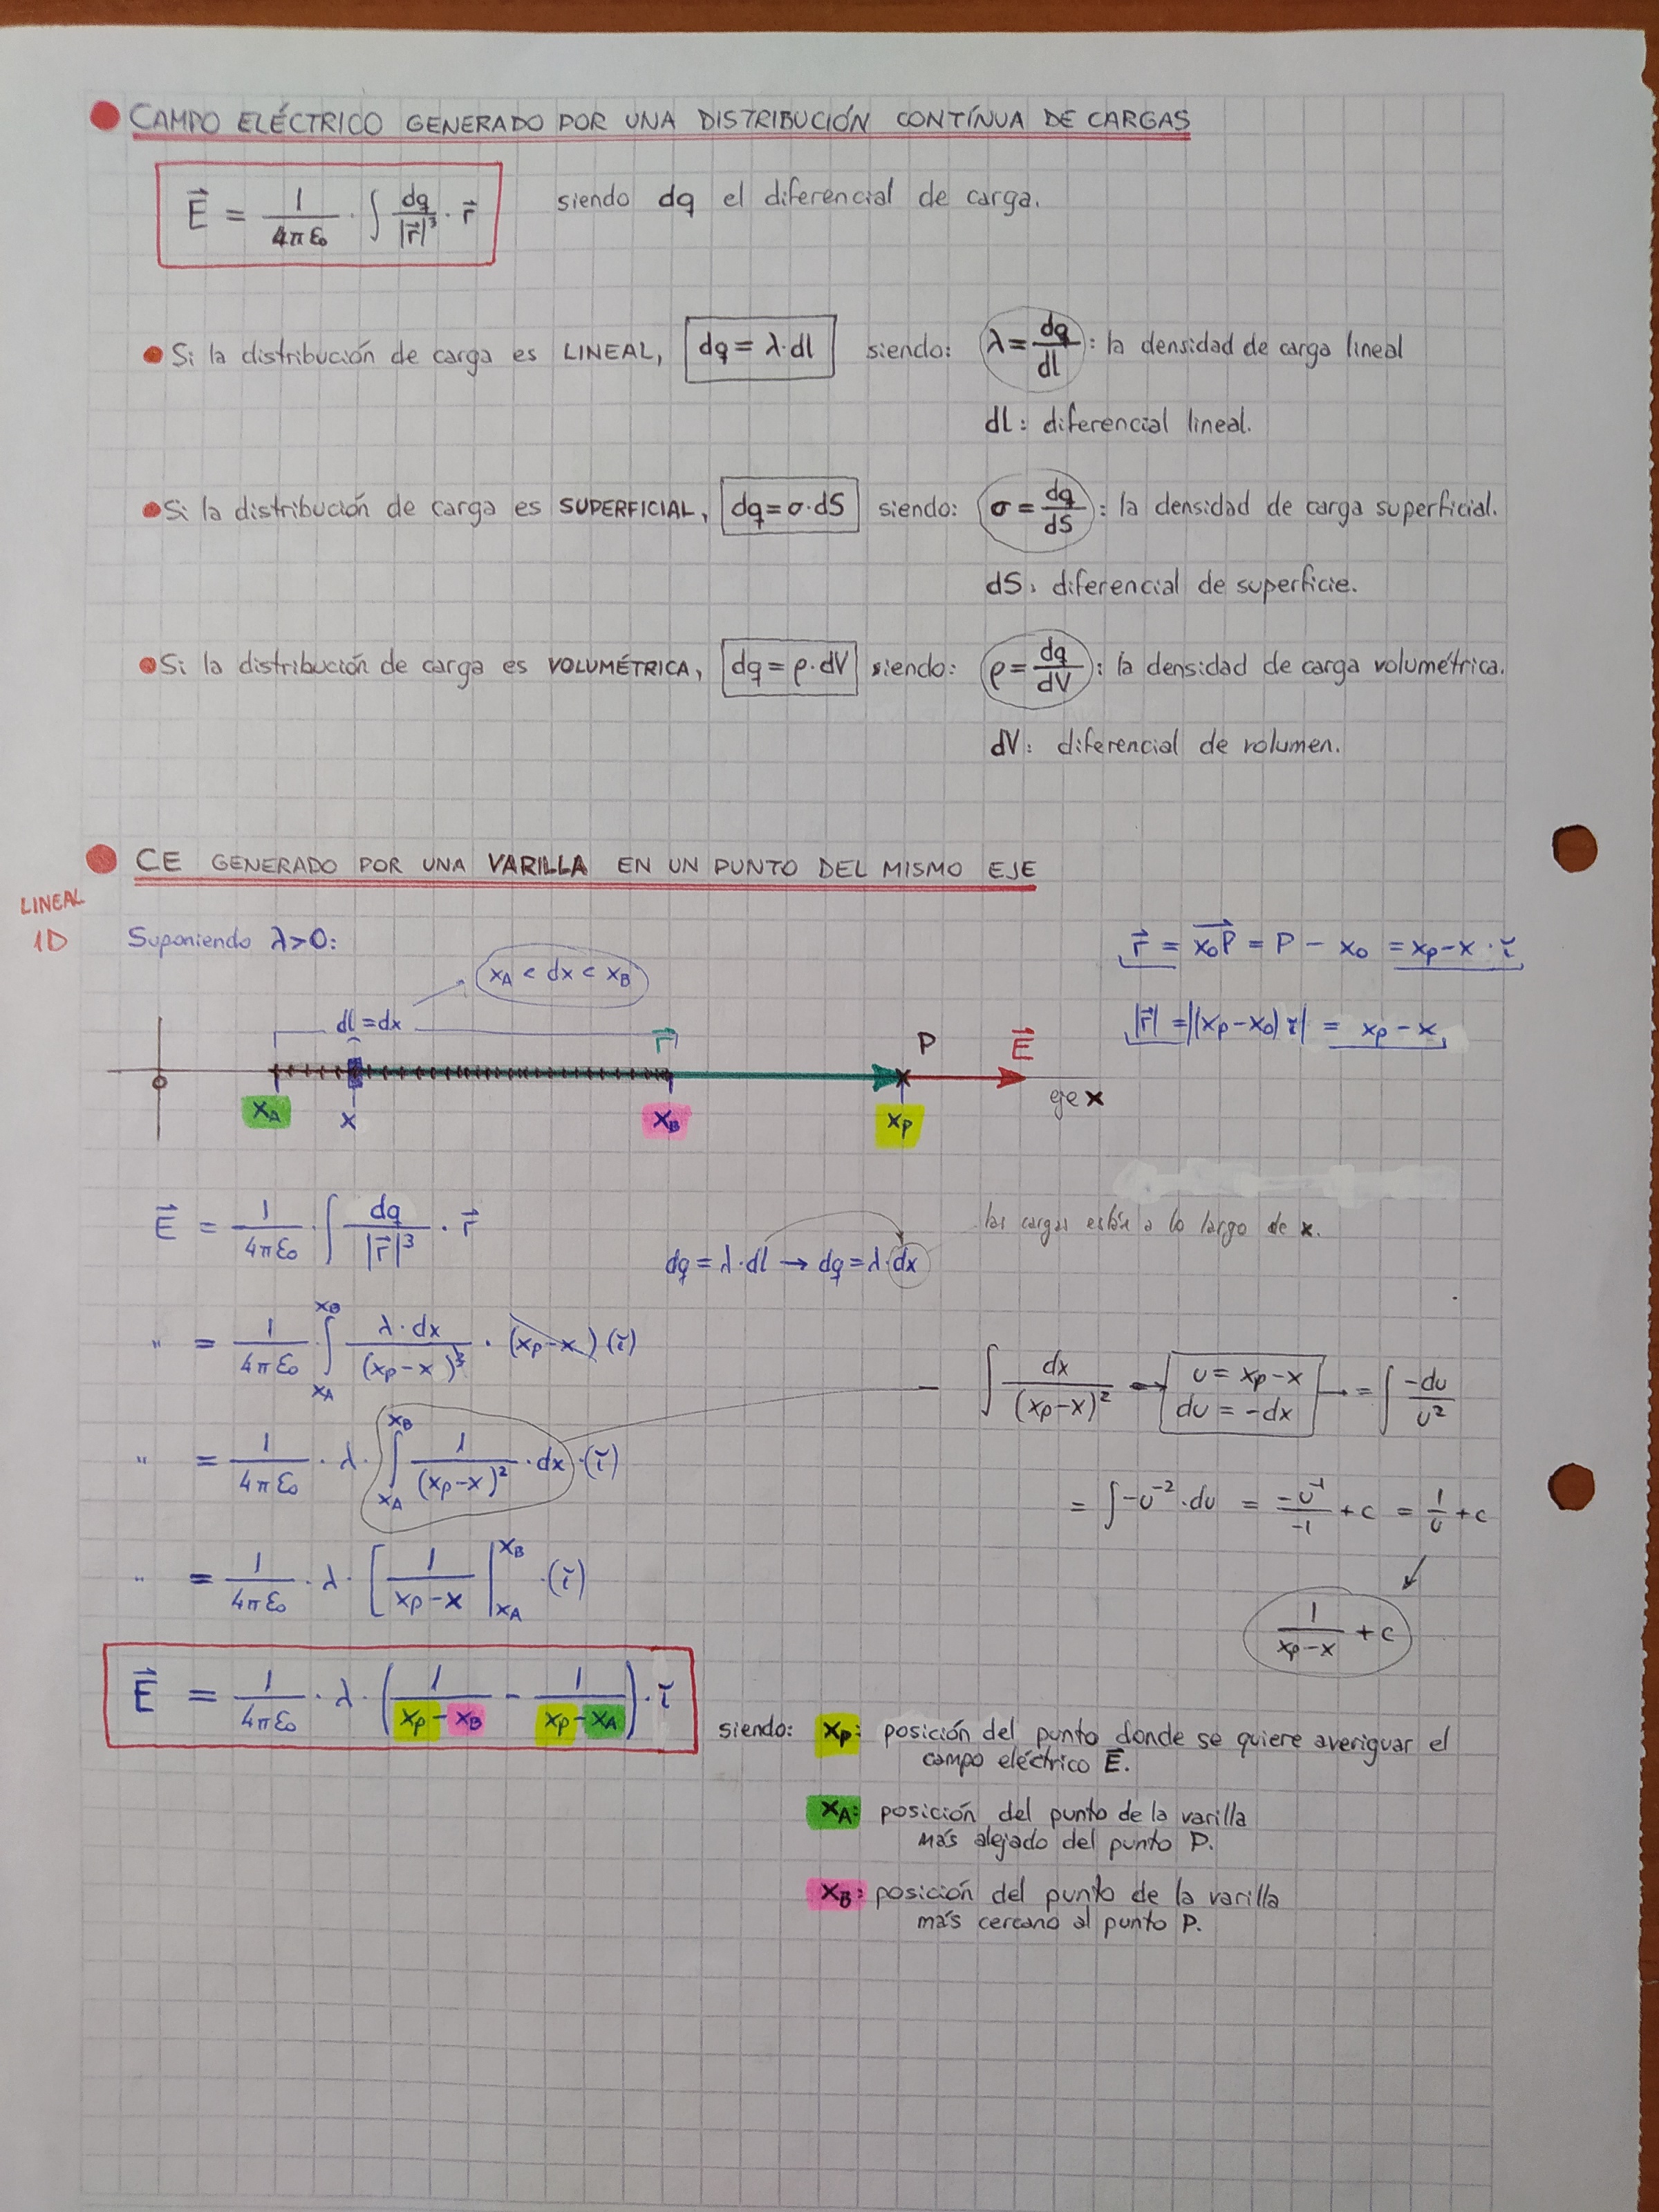 CAMPO ELÉCTRICO GENERADO POR UNA DISTRIBUCIÓN CONTÍNUA DE CARGAS
E⃗ = 1/(4πε₀) · ∫ dq/|r⃗|³ · r⃗ siendo dq el diferencial de carga.
Si la distribución de carga es LINEAL, dq = λ·dl siendo: λ = dq/dl : la densidad de carga lineal
dl: diferencial lineal.
Si la distribución de carga es SUPERFICIAL, dq = σ·dS siendo: σ = dq/dS : la densidad de carga superficial.
dS: diferencial de superficie.
Si la distribución de carga es VOLUMÉTRICA, dq = ρ·dV siendo: ρ = dq/dV : la densidad de carga volumétrica.
dV: diferencial de volumen.
CE GENERADO POR UNA VARILLA EN UN PUNTO DEL MISMO EJE
LINEAL
1D
Suponiendo λ>0:
r⃗ = x₀P⃗ = P − x₀ = xp−x · ĭ
xA < dx < xB
|r⃗| = |(xp−x₀) ĭ| = xp−x
dl = dx
r⃗ P E⃗
O
xA x xB xp eje x
E⃗ = 1/(4πε₀) · ∫ dq/|r⃗|³ · r⃗
las cargas están a lo largo de x.
dq = λ·dl → dq = λ·dx
" = 1/(4πε₀) ∫_xA^xB λ·dx/(xp−x)³ · (xp−x)(ĭ)
∫ dx/(xp−x)² → u = xp−x
du = −dx → = ∫ −du/u²
" = 1/(4πε₀) · λ · ∫_xA^xB 1/(xp−x)² · dx · (ĭ)
= ∫ −u⁻² · du = −u⁻¹/−1 + c = 1/u + c
" = 1/(4πε₀) · λ · [ 1/(xp−x) |_xA^xB · (ĭ)
1/(xp−x) + c
E⃗ = 1/(4πε₀) · λ · ( 1/(xp−xB) − 1/(xp−xA) ) · ĭ
siendo: xp: posición del punto donde se quiere averiguar el
campo eléctrico E⃗.
xA: posición del punto de la varilla
más alejado del punto P.
xB: posición del punto de la varilla
más cercano al punto P.